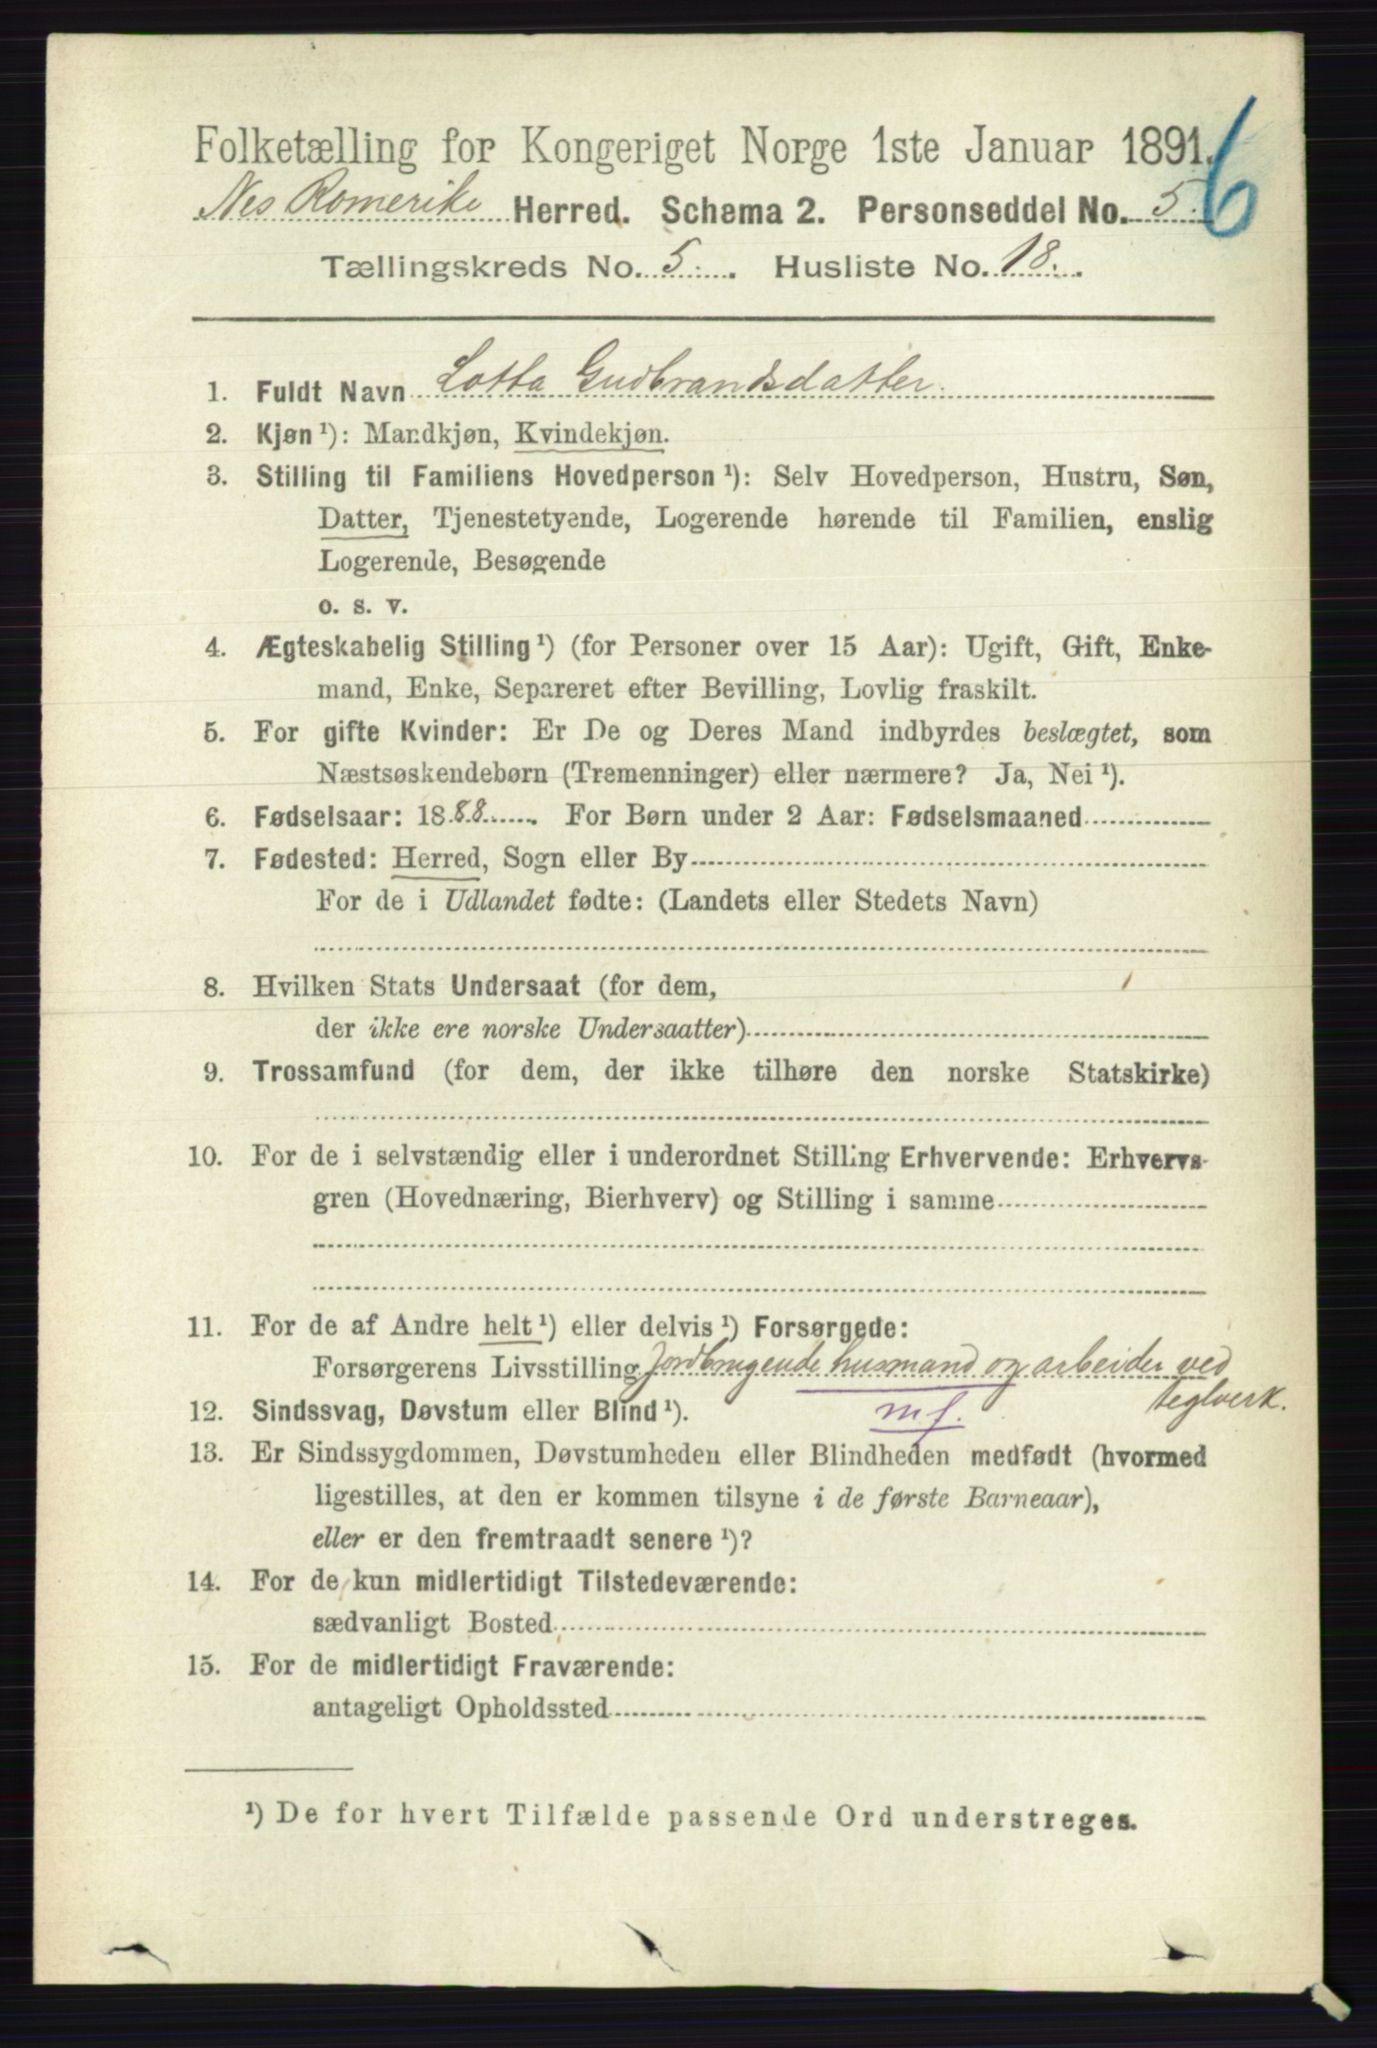 Folketælling for Kongeriget Norge 1ste Januar 1891.
6
Nes Romerike Herred. Schema 2. Personseddel No. 5.
Tællingskreds No. 5. Husliste No. 18.
1. Fuldt Navn Lotta Gudbrandsdatter.
2. Kjøn ¹): Mandkjøn, Kvindekjøn.
3. Stilling til Familiens Hovedperson ¹): Selv Hovedperson, Hustru, Søn,
Datter, Tjenestetyende, Logerende hørende til Familien, enslig
Logerende, Besøgende
o. s. v.
4. Ægteskabelig Stilling ¹) (for Personer over 15 Aar): Ugift, Gift, Enke-
mand, Enke, Separeret efter Bevilling, Lovlig fraskilt.
5. For gifte Kvinder: Er De og Deres Mand indbyrdes beslægtet, som
Næstsøskendebørn (Tremenninger) eller nærmere? Ja, Nei ¹).
6. Fødselsaar: 1888. For Børn under 2 Aar: Fødselsmaaned
7. Fødested: Herred, Sogn eller By
For de i Udlandet fødte: (Landets eller Stedets Navn)
8. Hvilken Stats Undersaat (for dem,
der ikke ere norske Undersaatter)
9. Trossamfund (for dem, der ikke tilhøre den norske Statskirke)
10. For de i selvstændig eller i underordnet Stilling Erhvervende: Erhvervs-
gren (Hovednæring, Bierhverv) og Stilling i samme
11. For de af Andre helt ¹) eller delvis ¹) Forsørgede:
Forsørgerens Livsstilling Jordbrugende husmand og arbeider ved
teglverk.
12. Sindssvag, Døvstum eller Blind ¹). m f.
13. Er Sindssygdommen, Døvstumheden eller Blindheden medfødt (hvormed
ligestilles, at den er kommen tilsyne i de første Barneaar),
eller er den fremtraadt senere ¹)?
14. For de kun midlertidigt Tilstedeværende:
sædvanligt Bosted
15. For de midlertidigt Fraværende:
antageligt Opholdssted
¹) De for hvert Tilfælde passende Ord understreges.